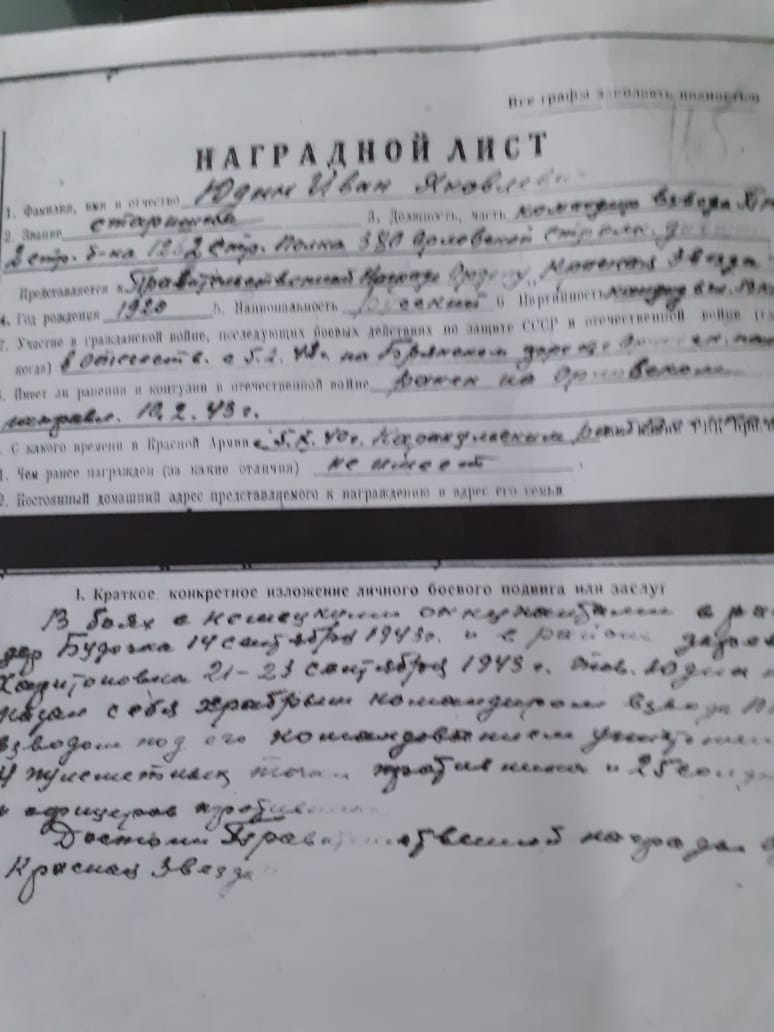 Все графы заполнять полностью
НАГРАДНОЙ ЛИСТ
1. Фамилия, имя и отчество Юдин Иван Яковлеви
2. Звание старшина 3. Должность, часть командир взвода
2 стр. б-на 1262 стр. полка 380 Орловской стрелк.
Представляется к Правительственной Награде Ордену „Красная Звезда
4. Год рождения 1920 5. Национальность русский 6 Партийность
Участие в гражданской войне, последующих боевых действиях по защите СССР и отечественной войне
когда) в отечеств. с 5.2.43г. на Брянском
Имеет ли ранения и контузии в отечественной войне ранен на Орловском
направл. 10.2.43г.
С какого времени в Красной Армии с 5.X.40г.
1. Чем ранее награжден (за какие отличия) не имеет
2. Постоянный домашний адрес представляемого к награждению и адрес его семьи
I. Краткое, конкретное изложение личного боевого подвига или заслуг
В боях с немецкими оккупантами в
дер Будочка 14 сентября 1943г. и в районе
Харитоновка 21-23 сентября 1943г. тов. Юдин
казал себя храбрым командиром взвода
взводом под его командованием
4 пулеметных точки противника и 25
и офицеров
Достоин Правительственной награды
Красная Звезда